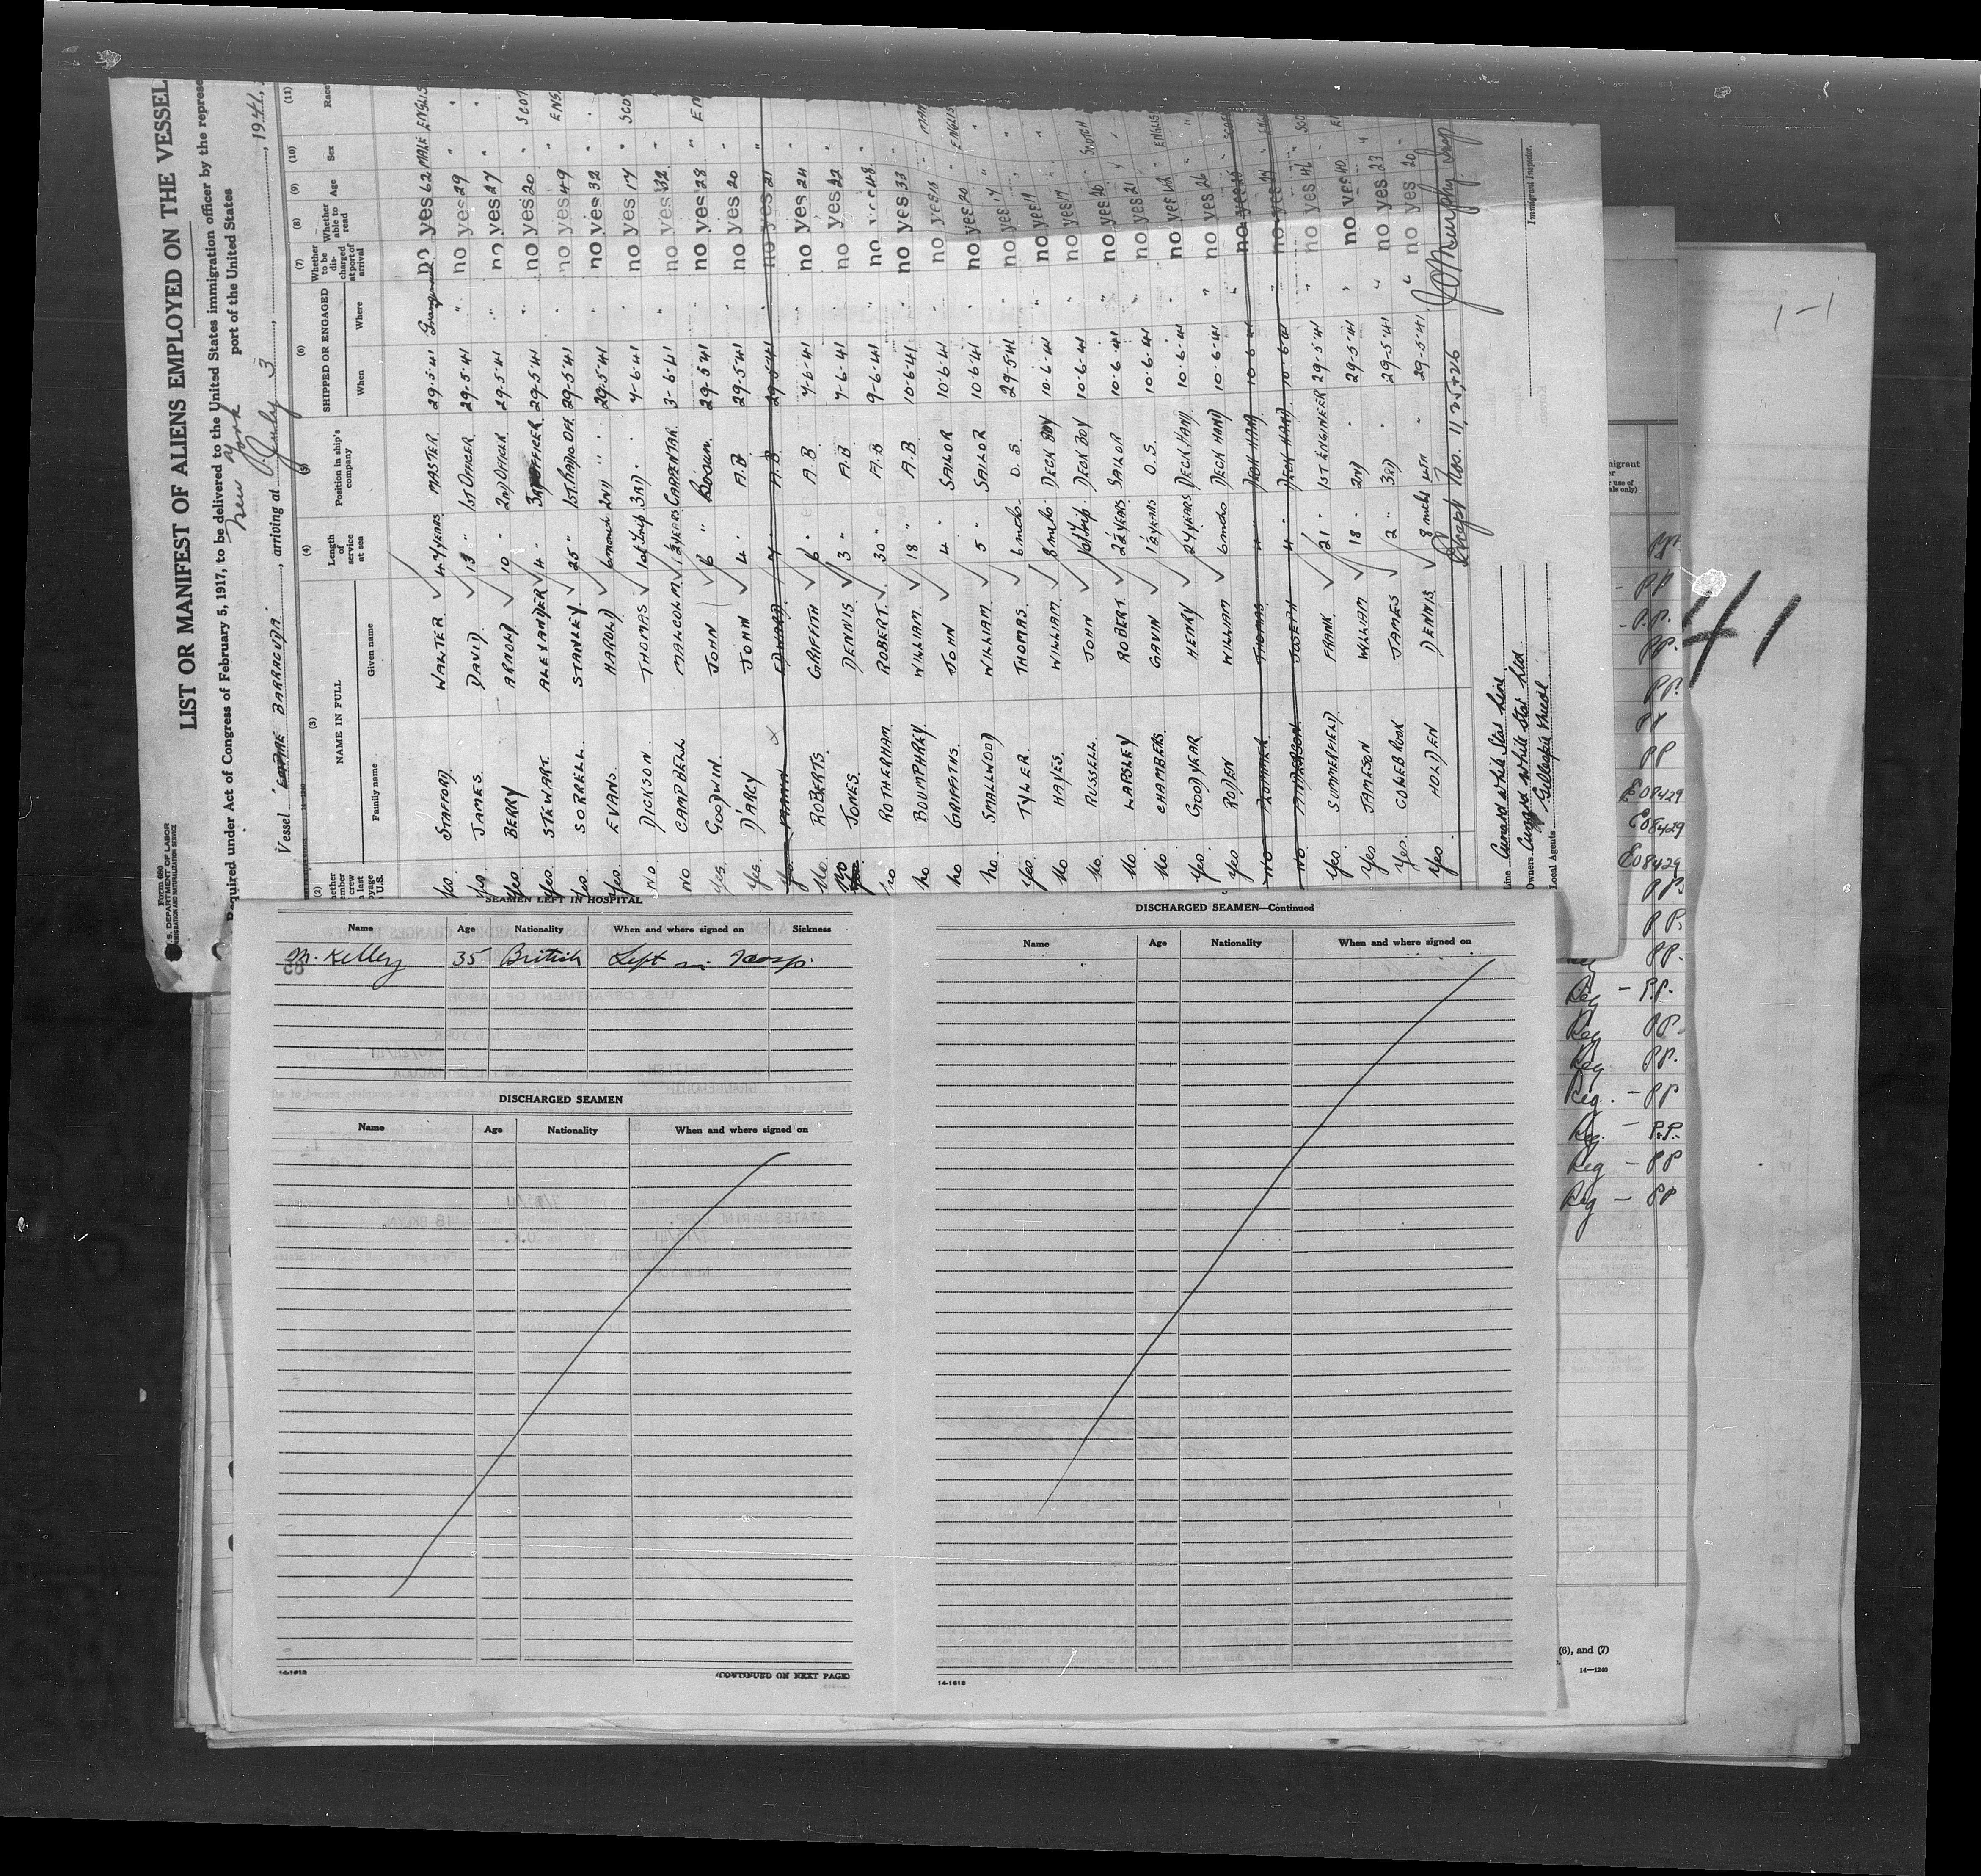 Form 680
U.S. DEPARTMENT OF LABOR
IMMIGRATION AND NATURALIZATION SERVICE
LIST OR MANIFEST OF ALIENS EMPLOYED ON THE VESSEL
Required under Act of Congress of February 5, 1917, to be delivered to the United States immigration officer by the represe
port of the United States
Vessel EMPIRE BARRACUDA, arriving at New York July 3, 1941,
(2) (3) (4) (5) (6) (7) (8) (9) (10) (11)
NAME IN FULL
Family name Given name
Length of service at sea
Position in ship's company
SHIPPED OR ENGAGED
When Where
Whether to be discharged at port of arrival
Whether able to read
Age
Sex
Race
Yes. STAFFORD. WALTER 44 YEARS MASTER 29.5.41 no yes 62 MALE ENGLIS
Yes JAMES. DAVID. 13 " 1ST OFFICER 29.5.41 " no yes 29 " "
Yes. BERRY ARNOLD 10 " 2ND OFFICER 29.5.41 " no yes 27 " "
Yes. STEWART. ALEXANDER 4 " 3RD OFFICER 29.5.41 " no yes 20 " SCOT
Yes. SORRELL. STANLEY 25 " 1ST RADIO OFF. 29.5.41 " no yes 49 " ENG.
Yes. EVANS. HAROLD 6 months 2ND " " 29.5.41 " no yes 32 " "
NO. DICKSON. THOMAS 1st trip 3RD. " 4-6-41 " no yes 17 " SCO
NO CAMPBELL MALCOLM 12 YEARS CARPENTAR 3-6-41 " no yes 32 "
Yes. GOODWIN JOHN 6 " BOSUN. 29.5.41 " no yes 28 " EN
Yes. D'ARCY JOHN 4 " A.B 29.5.41 " no yes 20 "
Yes. EDWARD. 7 " A.B 29.5.41 " no yes 21 "
No. ROBERTS. GRIFFITH 6 " A.B 4-6-41 " no yes 24 "
NO JONES. DENNIS. 3 " A.B 4-6-41 " no yes 22 "
no ROTHERHAM. ROBERT. 30 " A.B 9-6-41 " no yes 48 "
no BOUMPHREY. WILLIAM 18 " A.B 10-6-41 " no yes 33 " MAN
no GRIFFITHS. JOHN 4 " SAILOR 10.6.41 no yes 20 " ENGLIS
no. SMALLWOOD WILLIAM. 5 " SAILOR 10.6.41 no yes
Yes TYLER. THOMAS. 6 mnths O.S. 29.5.41 no yes 19
No HAYES. WILLIAM. 8 mnths. DECK BOY 10.6.41 " no yes 17 "
No. RUSSELL. JOHN 1st trip. DECK BOY 10.6.41 " no yes 20 SCOTCH
No LAPSLEY ROBERT. 2½ YEARS SAILOR 10.6.41 no yes 21 "
No. CHAMBERS GAVIN 1½ YEARS O.S. 10.6.41 no yes 42 " ENGLIS
Yes GOODYEAR HENRY 24 YEARS DECK HAND 10.6.41 no yes 26 "
Yes RODEN WILLIAM 6 mnths DECK HAND 10.6.41 " no yes
NO THOMAS. 4 " DECK HAND. 10.6.41 no yes
NO. JOSEPH 4 " DECK HAND. 10.6.41 no yes
Yes. SUMMERFIELD. FRANK 21 " 1ST ENGINEER 29.5.41 " no yes
Yes JAMESON WILLIAM 18 " 2ND " 29.5.41 " no yes 40
Yes. COLEBROOK JAMES 2 " 3RD " 29.5.41 " no yes 27 "
Yes HOLDEN DENNIS 8 mnths 4TH " 29.5.41 " no yes 20 "
Except Nos. 11, 25, +26 J O Murphy Insp
Immigrant Inspector.
Line Cunard White Star Line
Owners Cunard White Star Ltd.
Local Agents
SEAMEN LEFT IN HOSPITAL
Name Age Nationality When and where signed on Sickness
M. Kelley 35 British Left in Hosp.
DISCHARGED SEAMEN
Name Age Nationality When and where signed on
14-1618
(CONTINUED ON NEXT PAGE)
DISCHARGED SEAMEN—Continued
Name Age Nationality When and where signed on
14-1618
1-1
41
PP.
- PP
- P.P.
PP.
PP.
PP
PP
E08429
E08429
E08429
PP.
PP.
PP.
Reg - P.P.
Reg PP.
Reg PP.
Reg. - PP
Reg. - P.P.
Reg - PP
Reg - PP
(6), and (7)
14—1240